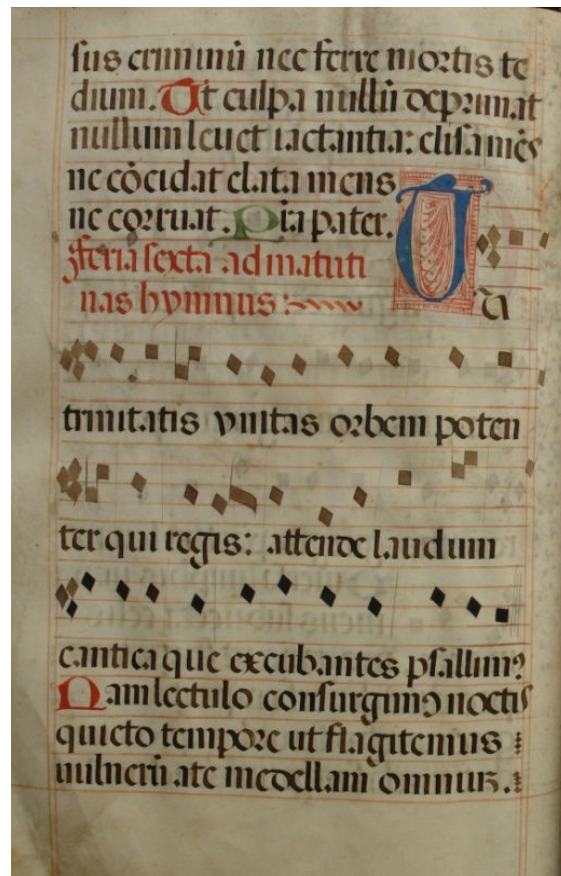 sus criminū nec ferre mortis te
dium. Ut culpa nullū deprimat
nullum leuet iactantia: elisa mēs
ne cōcidat elata mens
ne corruat. Pia pater.
feria sexta ad matuti
nas hymnus:
Tu
trinitatis vnitas orbem poten
ter qui regis: attende laudum
cantica que excubantes psallimꝰ
Nam lectulo consurgimꝰ noctis
quieto tempore ut flagitemus
uulnerū a te medellam omniuꝫ.